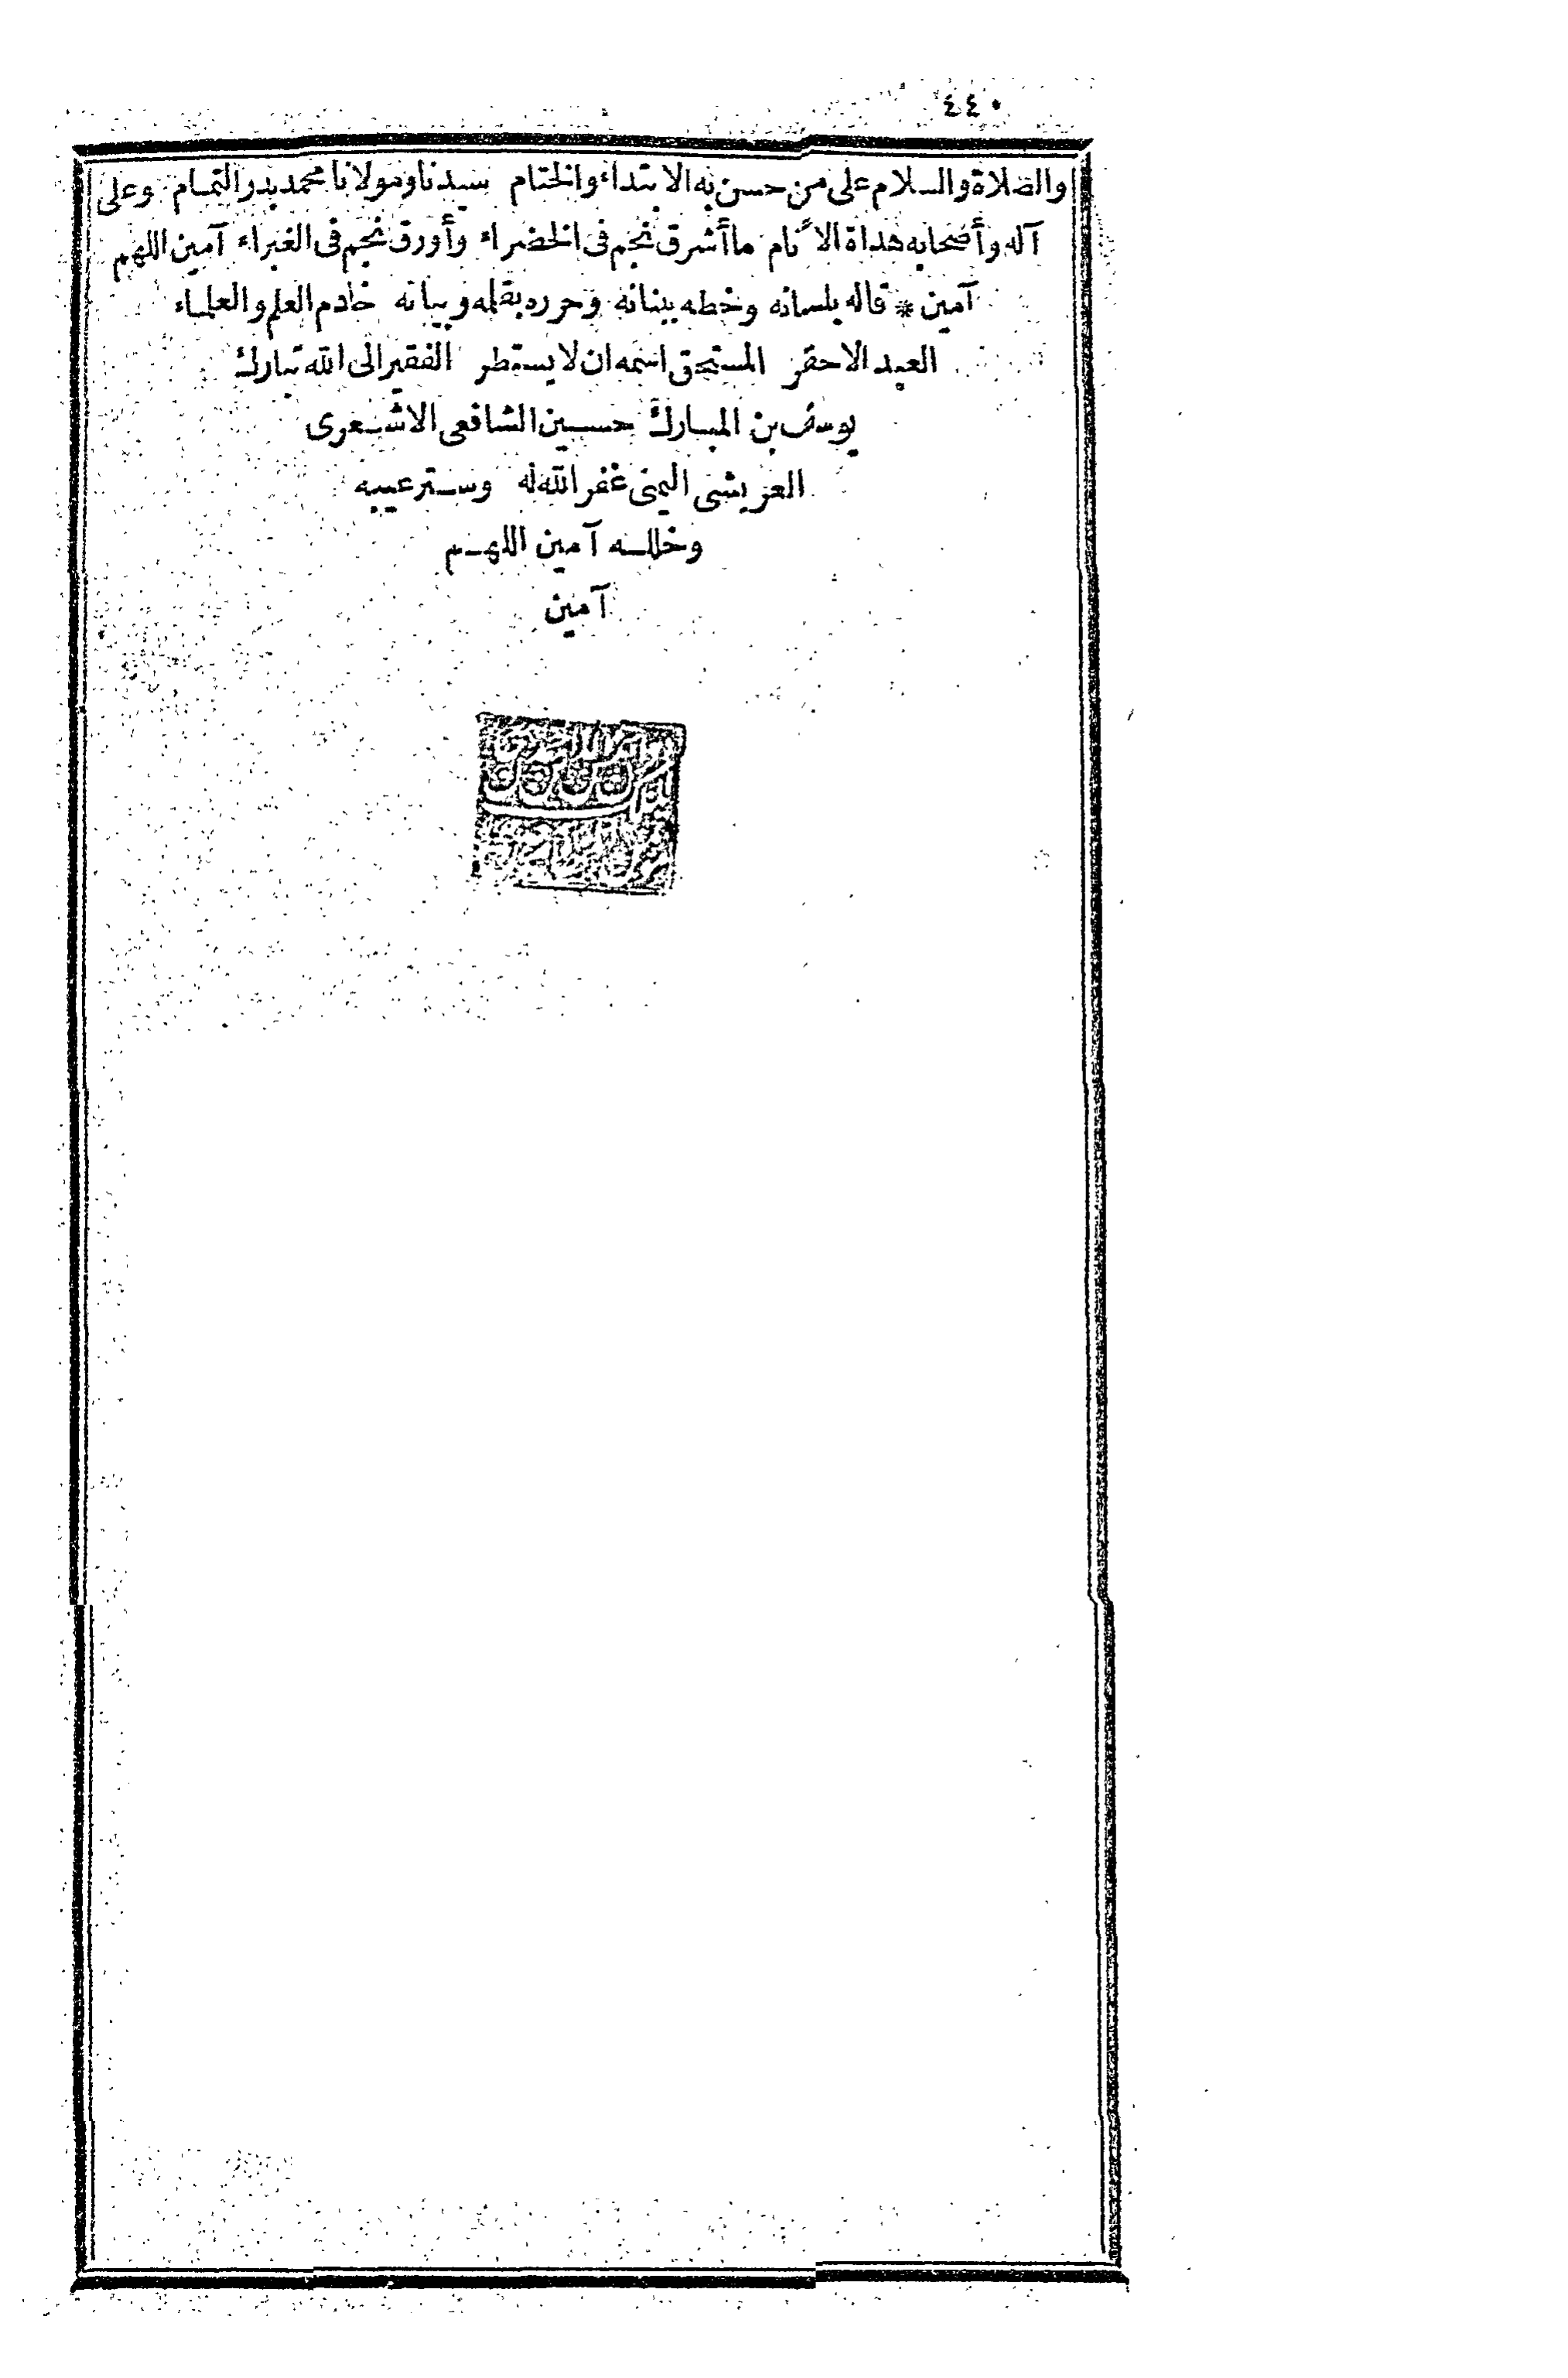 ٤٤٠
والصلاة والسلام على من حسن به الابتداء والختام سيدنا ومولانا محمد بدر التمام وعلى
آله وأصحابه هداة الأنام ما أشرق نجم في الخضراء وأورق نجم في الغبراء آمين اللهم
آمين * قاله بلسانه وخطه ببنانه وحرره بقلمه وبيانه خادم العلم والعلماء
العبد الاحقر المستحق اسمه ان لا يستطر الفقير الى الله تبارك
يوسف بن المبارك حسين الشافعى الاشعرى
اليمنى غفر الله له وستر عيبه
وخلله آمين اللهم
آمين